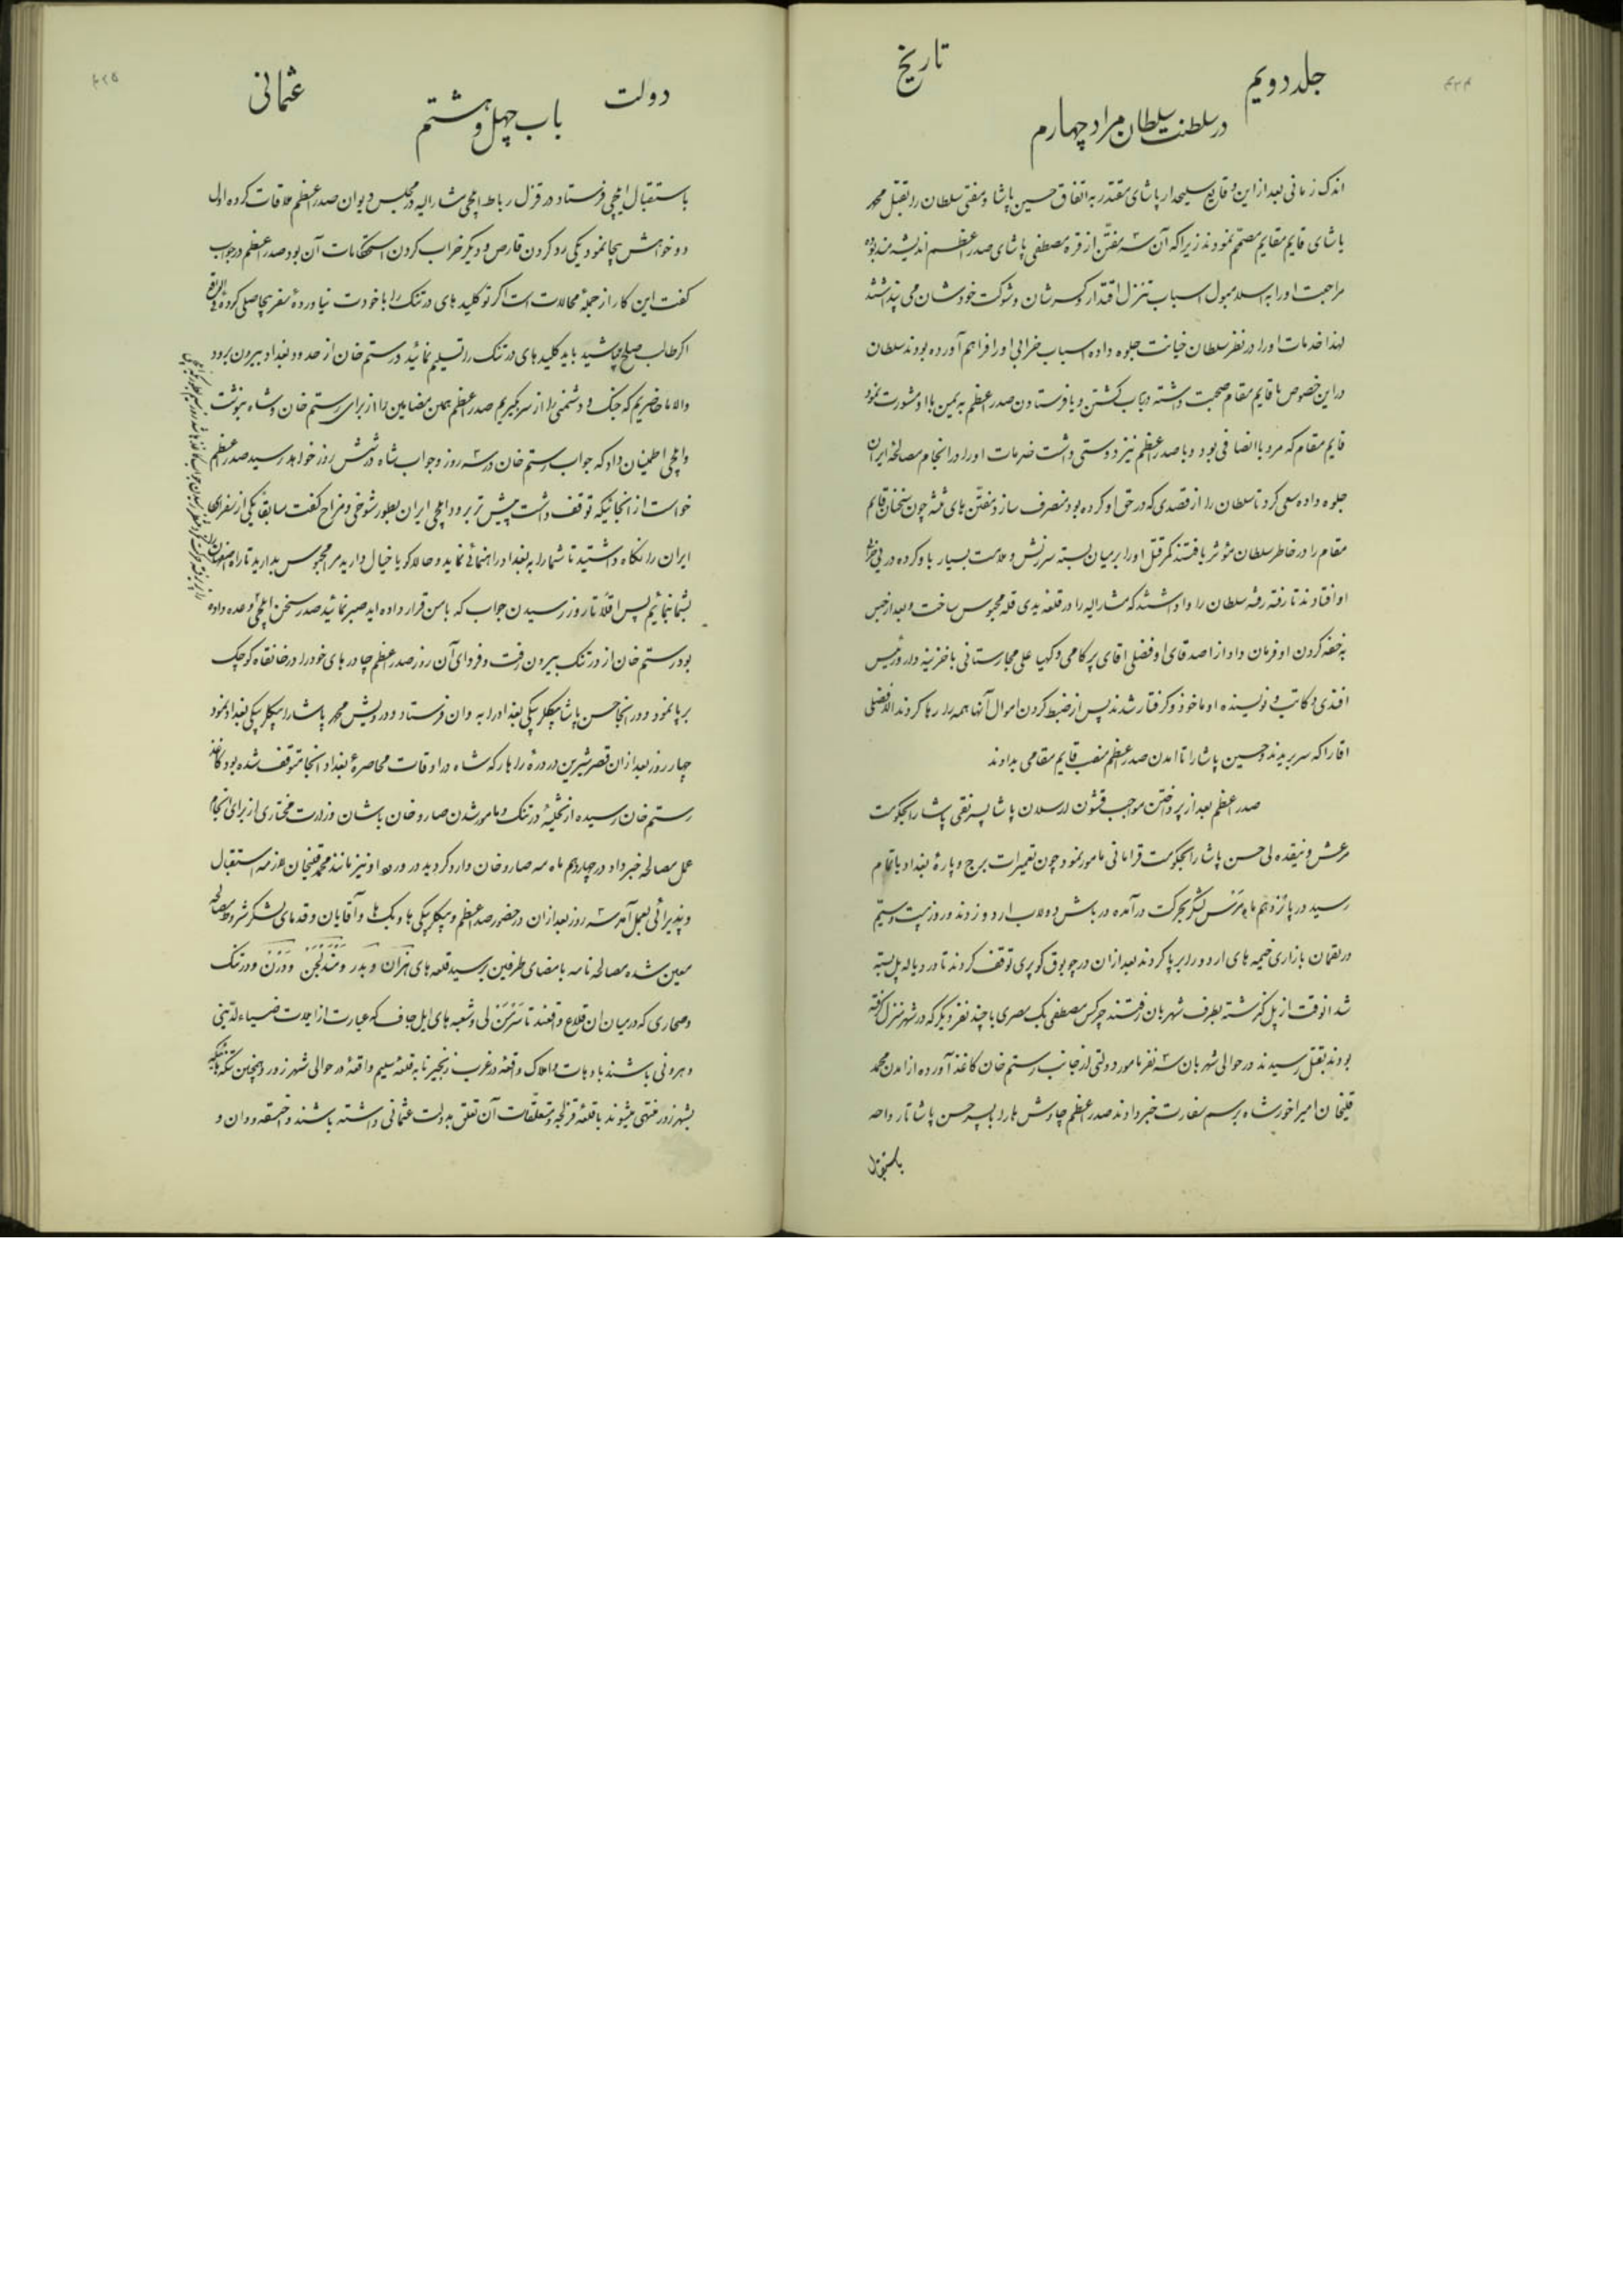 جلد دویم
تاریخ
در سلطنت سلطان مراد چهارم
اندک زمانی بعد از این وقایع سلیحدار پاشای مقتدر به اتفاق حسین پاشا و مفتی سلطان را بقتل محمد
پاشای قایم مقام مصمّم نمودند زیرا که آن سه مفتّن از قره مصطفی پاشای صدر اعظم اندیشه مند بوده
مراجعت او را به اسلامبول اسباب تنزل اقتدار و کسر شان و شوکت خودشان می پنداشتند
لهذا خدمات او را در نظر سلطان خیانت جلوه داده اسباب خرابی او را فراهم آورده بودند سلطان
در این خصوص با قایم مقام صحبت داشته در باب کشتن و یا فرستادن صدر اعظم به یمن با او مشورت نمود
قایم مقام که مرد با انصافی بود و با صدر اعظم نیز دوستی داشت خدمات او را در انجام مصالحهٔ ایران
جلوه داده سعی کرد تا سلطان را از قصدی که در حق او کرده بود منصرف سازد مفتّن های ثلثه چون سخنان قایم
مقام را در خاطر سلطان مؤثر یافتند کمر قتل او را بر میان بسته سرزنش و ملامت بسیار باو کرده در پی
او افتادند تا رفته رفته سلطان را وا داشتند که مشارالیه را در قلعه یدی قله محبوس ساخت و بعد از حبس
به خفه کردن او فرمان داد از اصدقای او فضلی اقای پرکامی و کهیا علی مجارستانی با خزینه دار و رئیس
افندی و کاتب و نویسنده او ماخوذ و گرفتار شدند پس از ضبط کردن اموال آنها همه را رها کردند الا فضلی
اقا را که سر بریدند و حسین پاشا را تا امدن صدر اعظم منصب قایم مقامی بدادند
صدر اعظم بعد از پرداختن مواجب قشون ارسلان پاشا پسر نقی پاشا را بحکومت
مرعش و نیقده لی حسن پاشا را بحکومت قرامانی مامور نمود چون تعمیرات برج و بارهٔ بغداد باتمام
رسید در پانزدهم ماه مرس لشکر بحرکت درآمده در باش دولاب اردو زدند در روز بیست و سیّم
در بازاری خیمه های اردو را برپا کردند بعد از ان در چوبوق کوپری توقف کردند تا در دیاله پل بسته
شد انوقت از پل گذشته بطرف شهربان رفتند چرکس مصطفی بک مصری با چند نفر دیگر که در شهر منزل گرفته
بودند بقتل رسیدند در حوالی شهربان سه نفر مامور دولتی از جانب رستم خان کاغذ آورده از امدن محمد
قلیخان امیر اخور شاه برسم سفارت خبر دادند صدر اعظم چاوش ها را با پسر حسن پاشا تا راحه
باستقبال
دولت
عثمانی
باب چهل و هشتم
باستقبال ایلچی فرستاد در قزل رباط ایلچی مشارالیه در مجلس دیوان صدر اعظم ملاقات کرده اول
دو خواهش بیجا نمود یکی رد کردن قارص و دیگر خراب کردن استحکامات آن بود صدر اعظم در جواب
گفت این کار از جملهٔ محالات است اگر تو کلید های درتنک را با خودت نیاوردهٔ سفر بیحاصلی کردهٔ
اگر طالب صلح میباشید باید کلید های درتنک را تسلیم نمائید و رستم خان از حدود بغداد بیرون برود
والا ما حاضریم که جنک و دشمنی را از سر بگیریم صدر اعظم همین مضامین را از برای رستم خان و شاه بنوشت
و ایلچی اطمینان داد که جواب رستم خان در سه روز و جواب شاه در شش روز خواهد رسید صدر اعظم
خواست از انجائیکه توقف داشت پیش تر برود ایلچی ایران بطور شوخی و مزاح گفت سابقا یکی از سفرای
ایران را نگاه داشتید تا شما را به بغداد راهنمائی نماید و حالا گویا خیال دارید مرا محبوس بدارید تا راه اصفهان را
بشما بنمایم پس اقلّا تا روز رسیدن جواب که با من قرار داده اید صبر نمائید صدر سخن ایلچی وعده داده
بود رستم خان از درتنک بیرون رفت و فردای آن روز صدر اعظم چادر های خود را در خانقاه کوچک
برپا نمود و در انجا حسن پاشا بیکلربیکی بغداد را به وان فرستاد و درویش محمد پاشا را بیکلربیکی بغداد نمود
چهار روز بعد از ان قصر شیرین در درهٔ زهار که شاه در اوقات محاصرهٔ بغداد انجا متوقف شده بود کاغذ
رستم خان رسیده از تخلیهٔ درتنک و مامور شدن صاروخان باشان وزارت مختاری از برای انجام
عمل مصالحه خبر داد در چهاردهم ماه مه صاروخان وارد گردید در ورود او نیز مانند محمد قلیخان لازمه استقبال
و پذیرائی بعمل آمد سه روز بعد از ان در حضور صدر اعظم و بیکلربیکی ها و بک ها و آقایان و قدمای لشکر شروط مصالحه
معین شده مصالحه نامه بامضای طرفین برسید قلعه های هزان و بدر و مندلجن و درنن و درتنک
و صحاری که در میان ان قلاع واقعند تا سرمن لی و شعبه های ایل جاف که عبارت از ایلات ضیاءالدینی
و هرونی باشند با دهات و املاک واقعهٔ در غرب زنجیر تا به قلعهٔ سلیم واقعهٔ در حوالی شهر زور و همچنین تنگه هائیکه
بشهر زور منتهی میشوند با قلعهٔ قزلجه و متعلّقات آن تعلق بدولت عثمانی داشته باشند و و دان و